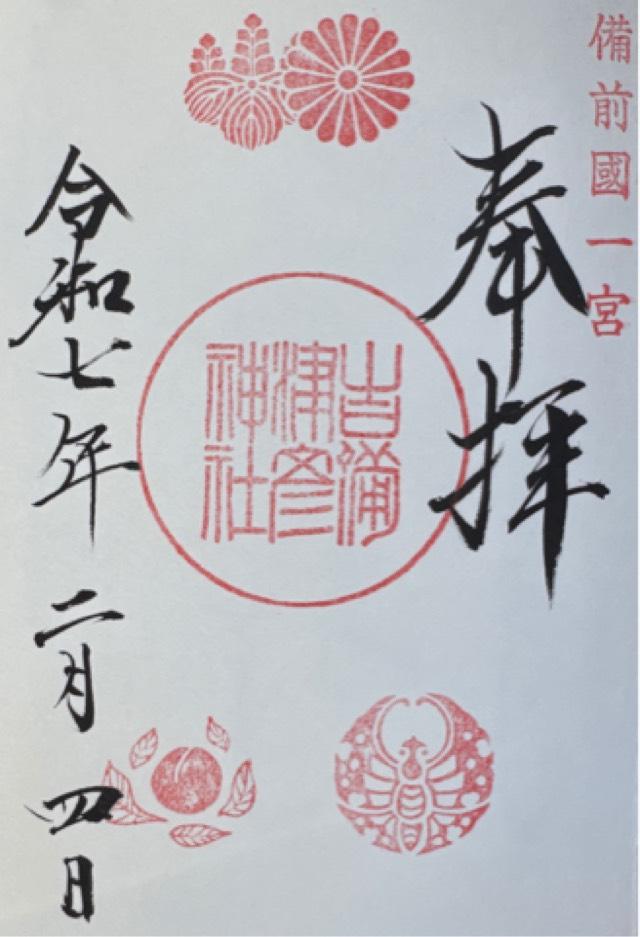 備前國一宮
奉拝
吉備
津彦
神社
令和七年二月四日